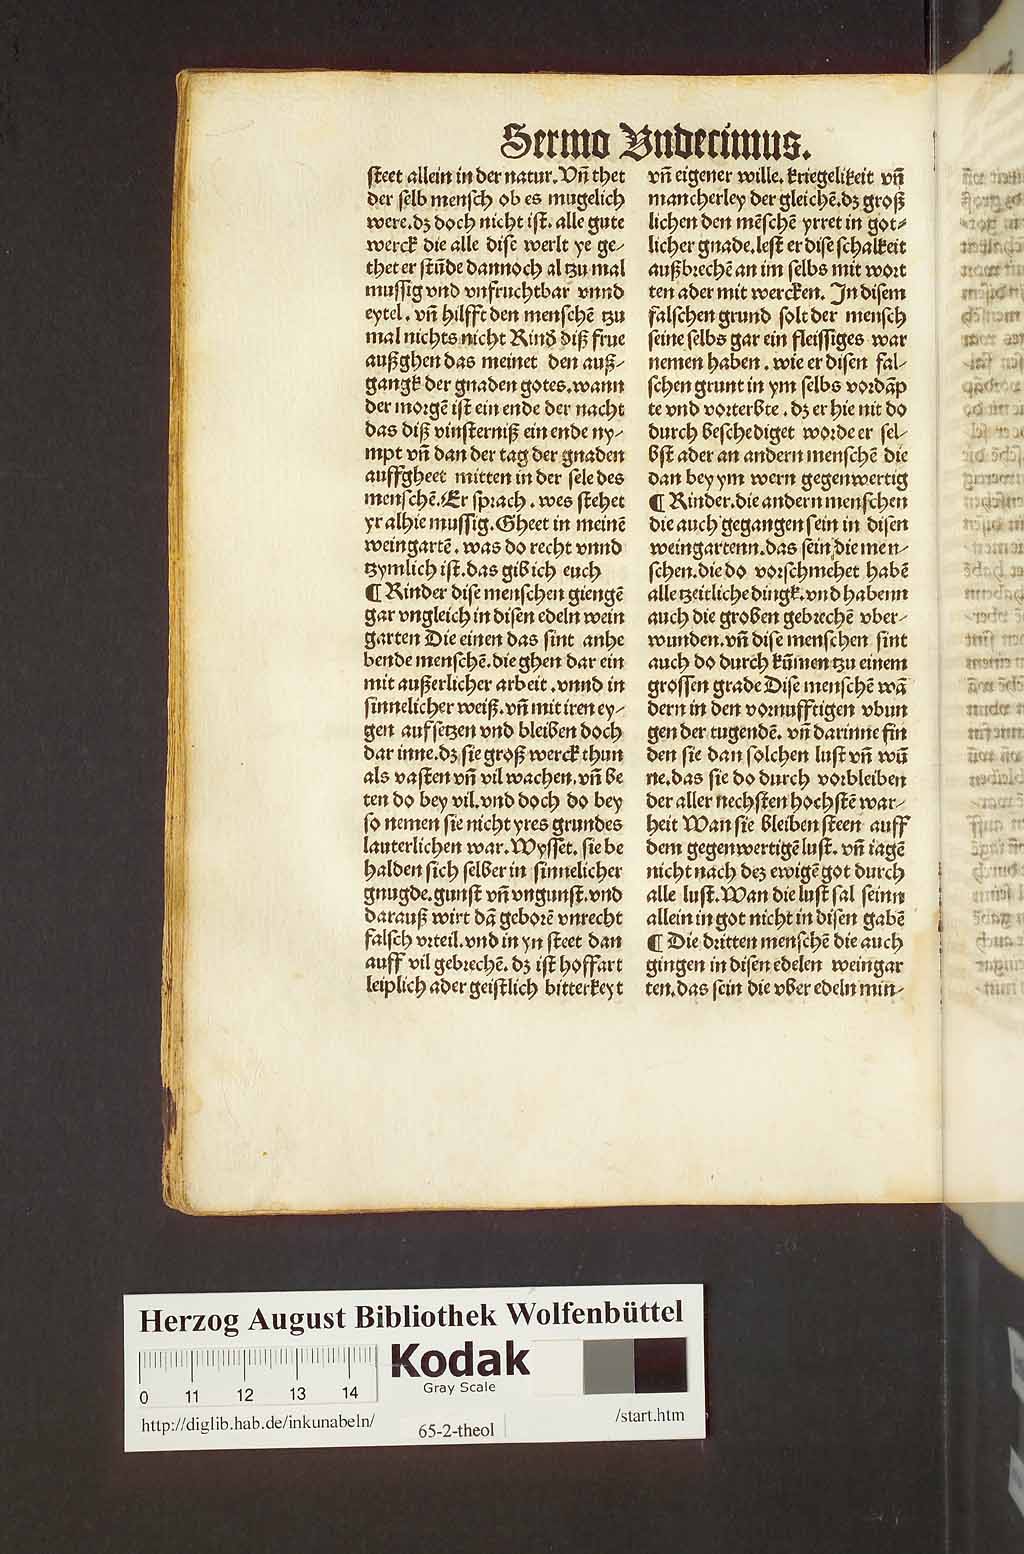 Sermo Vndecimus.
steet allein in der natur. Vñ thet
der selb mensch ob es mugelich
were. dz doch nicht ist. alle gute
werck die alle dise werlt ye ge-
thet er stũde dannoch al tzu mal
mussig vnd vnfruchtbar vnnd
eytel. vñ hilfft den menschẽ tzu
mal nichts nicht Rinð diß frue
außghen das meinet den auß-
gangk der gnaden gotes. wann
der morgẽ ist ein ende der nacht
das diß vinsterniß ein ende ny-
mpt vñ dan der tag der gnaden
auffgheet mitten in der sele des
menschẽ. Er sprach. wes stehet
yr alhie mussig. Gheet in meinẽ
weingartẽ. was do recht vnnd
tzymlich ist. das gib ich euch
¶ Rinder dise menschen giengẽ
gar vngleich in disen edeln wein
garten Die einen das sint anhe
bende menschẽ. die ghen dar ein
mit außerlicher arbeit. vnnd in
sinnelicher weiß. vñ mit iren ey-
gen aufsetzen vnd bleiben doch
dar inne. dz sie groß werck thun
als vasten vñ vil wachen. vñ be
ten do bey vil. vnd doch do bey
so nemen sie nicht yres grundes
lauterlichen war. Wysset. sie be
halden sich selber in sinnelicher
gnugde. gunst vñ vngunst. vnd
darauß wirt dã geborẽ vnrecht
falsch vrteil. vnd in yn steet dan
auff vil gebrechẽ. dz ist hoffart
leiplich ader geistlich bitterkeyt
vñ eigener wille. kriegelikeit vñ
mancherley der gleichẽ. dz groß
lichen den mẽschẽ yrret in got-
licher gnade. lest er dise schalkeit
außbrechẽ an im selbs mit wort
ten ader mit wercken. In disem
falschen grund solt der mensch
seine selbs gar ein fleissiges war
nemen haben. wie er disen fal-
schen grunt in ym selbs vordãp
te vnd vorterbte. dz er hie nit do
durch beschediget worde er sel-
bst ader an andern menschẽ die
dan bey ym wern gegenwertig
¶ Rinder. die andern menschen
die auch gegangen sein in disen
weingartenn. das sein die men-
schen. die do vorschmehet habẽ
alle tzeitliche dingk. vnd habenn
auch die groben gebrechẽ vber-
wunden. vñ dise menschen sint
auch do durch kũmen tzu einem
grossen grade Dise menschẽ wã
dern in den vornufftigen vbun
gen der tugendẽ. vñ darinne fin
den sie dan solchen lust vñ wũ
ne. das sie do durch vorbleiben
der aller nechsten hochstẽ war-
heit Wan sie bleiben steen auff
dem gegenwertigẽ lust. vñ iagẽ
nicht nach dez ewigẽ got durch
alle lust. Wan die lust sal seinn
allein in got nicht in disen gabẽ
¶ Die dritten menschẽ die auch
gingen in disen edelen weingar
ten. das sein die vber edeln min-
Herzog August Bibliothek Wolfenbüttel
Kodak
Gray Scale
0 11 12 13 14
http://diglib.hab.de/inkunabeln/ 65-2-theol /start.htm